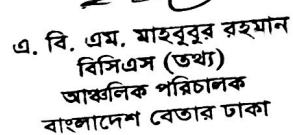 এ. বি. এম. মাহবুবুর রহমান
বিসিএস (তথ্য)
আঞ্চলিক পরিচালক
বাংলাদেশ বেতার ঢাকা